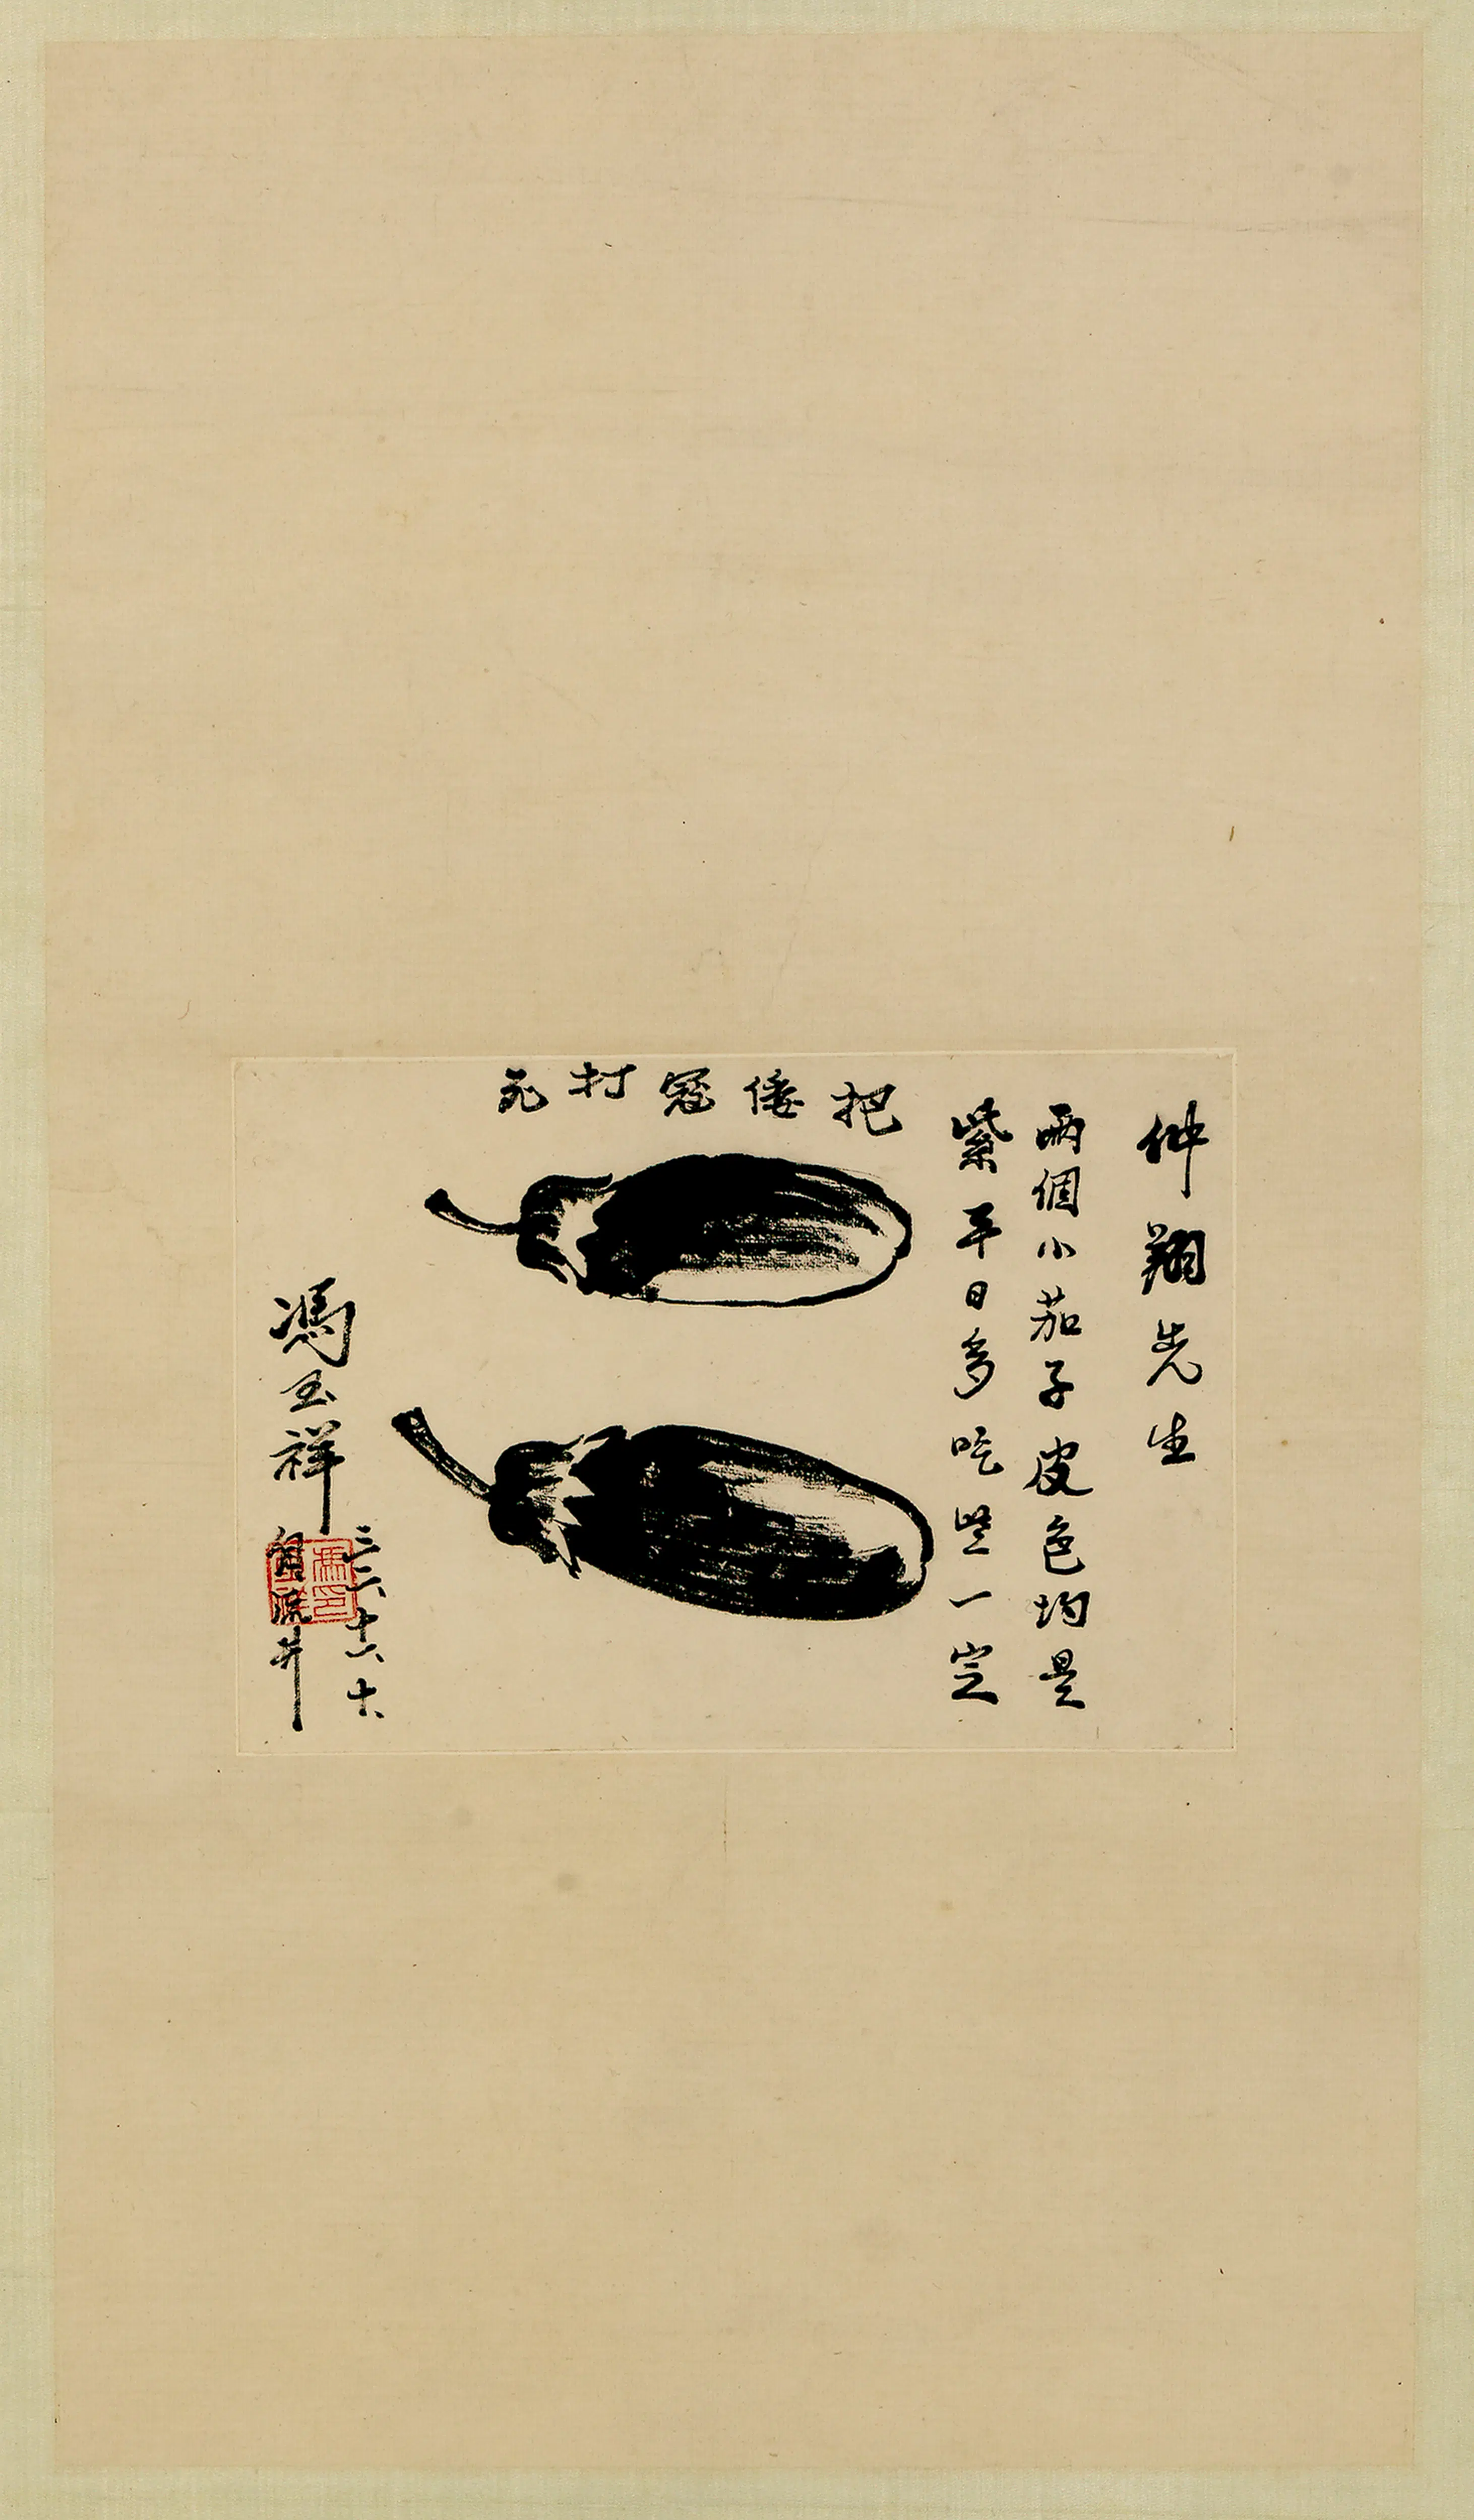 仲翔先生
兩個小茄子皮色均是
紫平日多吃些一定
把倭寇打死
馮玉祥
三二、六、十六、
自流井